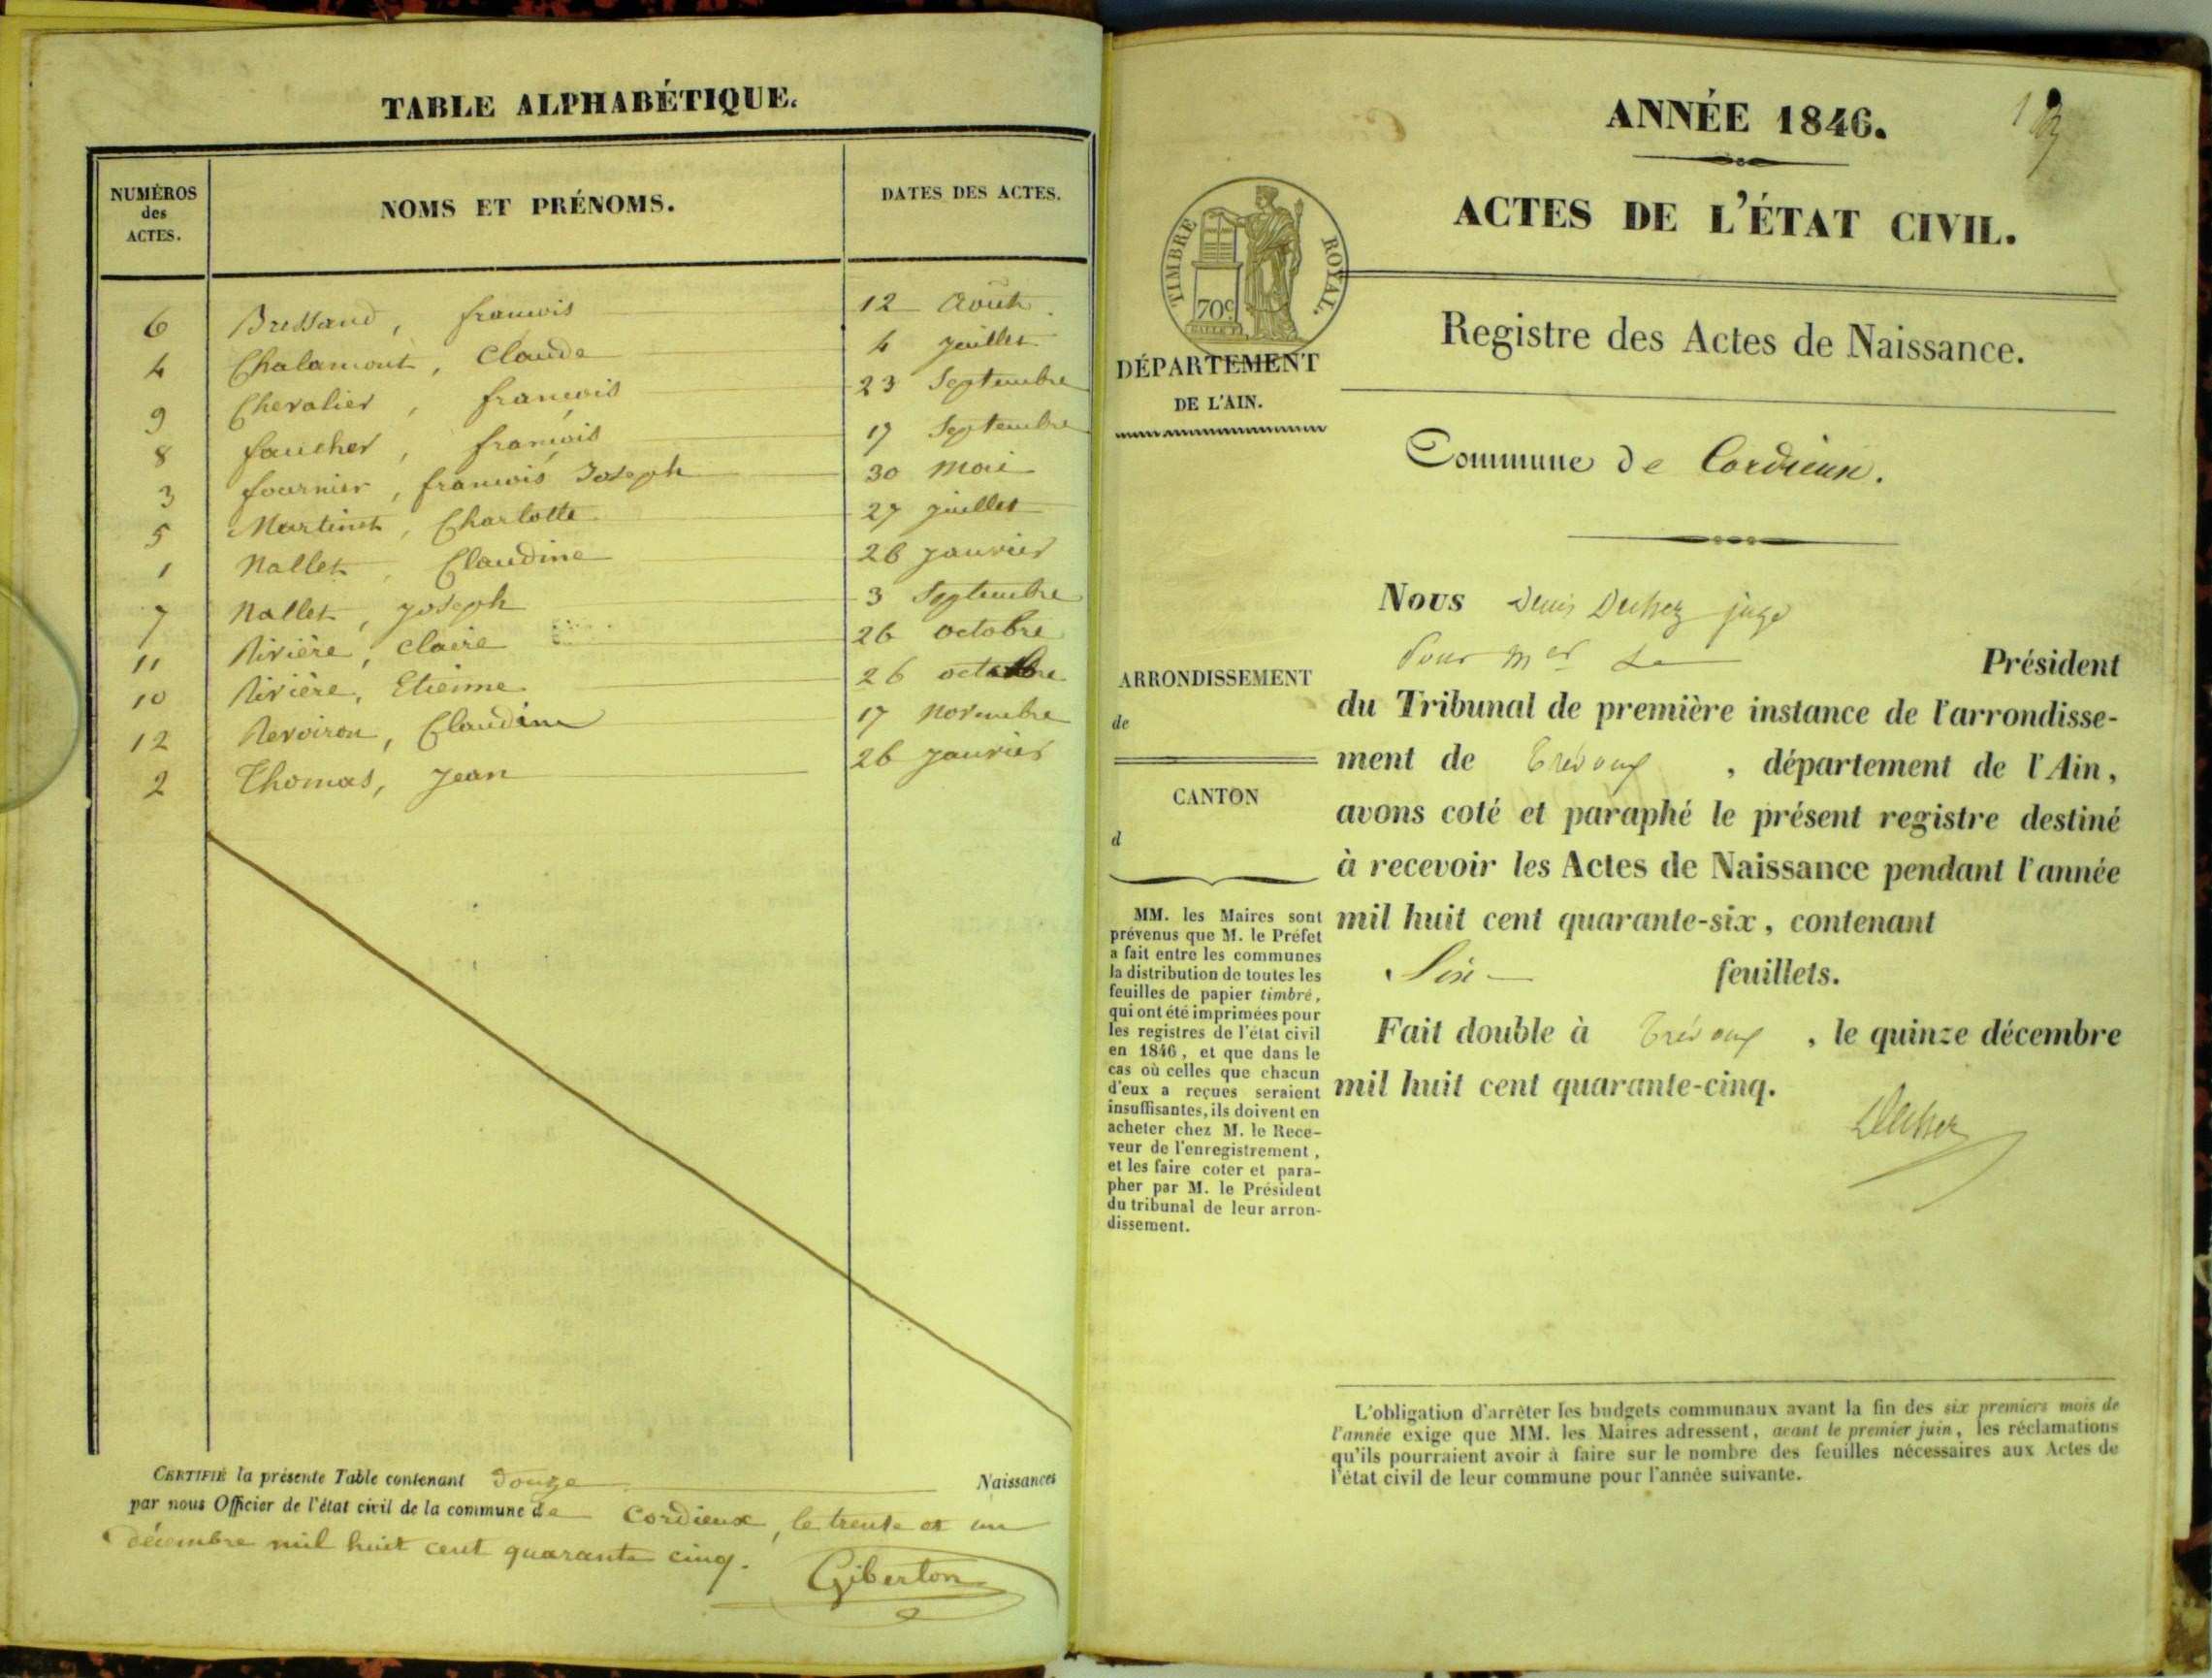 TABLE ALPHABÉTIQUE.
NUMÉROS
des
ACTES.
NOMS ET PRÉNOMS.
DATES DES ACTES.
6 Bressand, françois 12 Août.
4 Chalamont, Claude 4 juillet
9 Chevalier, françois 23 Septembre
8 faucher, françois 17 Septembre
3 fournier, françois Joseph 30 Mai
5 Martinet, Charlotte 27 juillet
1 Nallet, Claudine 26 janvier
7 Nallet, joseph 3 Septembre
11 Rivière, Claire 26 octobre
10 Rivière, Etienne 26 octobre
12 Revoiron, Claudine 17 Novembre
2 Thomas, Jean 26 janvier
CERTIFIÉ la présente Table contenant Douze Naissances
par nous Officier de l'état civil de la commune de Cordieux, le trente et un
décembre mil huit cent quarante cinq.
Giberton
ANNÉE 1846.
ACTES DE L'ÉTAT CIVIL.
TIMBRE ROYAL.
70c
DÉPARTEMENT
DE L'AIN.
Registre des Actes de Naissance.
Commune de Cordieux.
ARRONDISSEMENT
de
CANTON
d
MM. les Maires sont
prévenus que M. le Préfet
a fait entre les communes
la distribution de toutes les
feuilles de papier timbré,
qui ont été imprimées pour
les registres de l'état civil
en 1846, et que dans le
cas où celles que chacun
d'eux a reçues seraient
insuffisantes, ils doivent en
acheter chez M. le Rece-
veur de l'enregistrement,
et les faire coter et para-
pher par M. le Président
du tribunal de leur arron-
dissement.
Nous Denis juge
Pour Mer Le Président
du Tribunal de première instance de l'arrondisse-
ment de Trévoux, département de l'Ain,
avons coté et paraphé le présent registre destiné
à recevoir les Actes de Naissance pendant l'année
mil huit cent quarante-six, contenant
Six feuillets.
Fait double à Trévoux, le quinze décembre
mil huit cent quarante-cinq.
L'obligation d'arrêter les budgets communaux avant la fin des six premiers mois de
l'année exige que MM. les Maires adressent, avant le premier juin, les réclamations
qu'ils pourraient avoir à faire sur le nombre des feuilles nécessaires aux Actes de
l'état civil de leur commune pour l'année suivante.